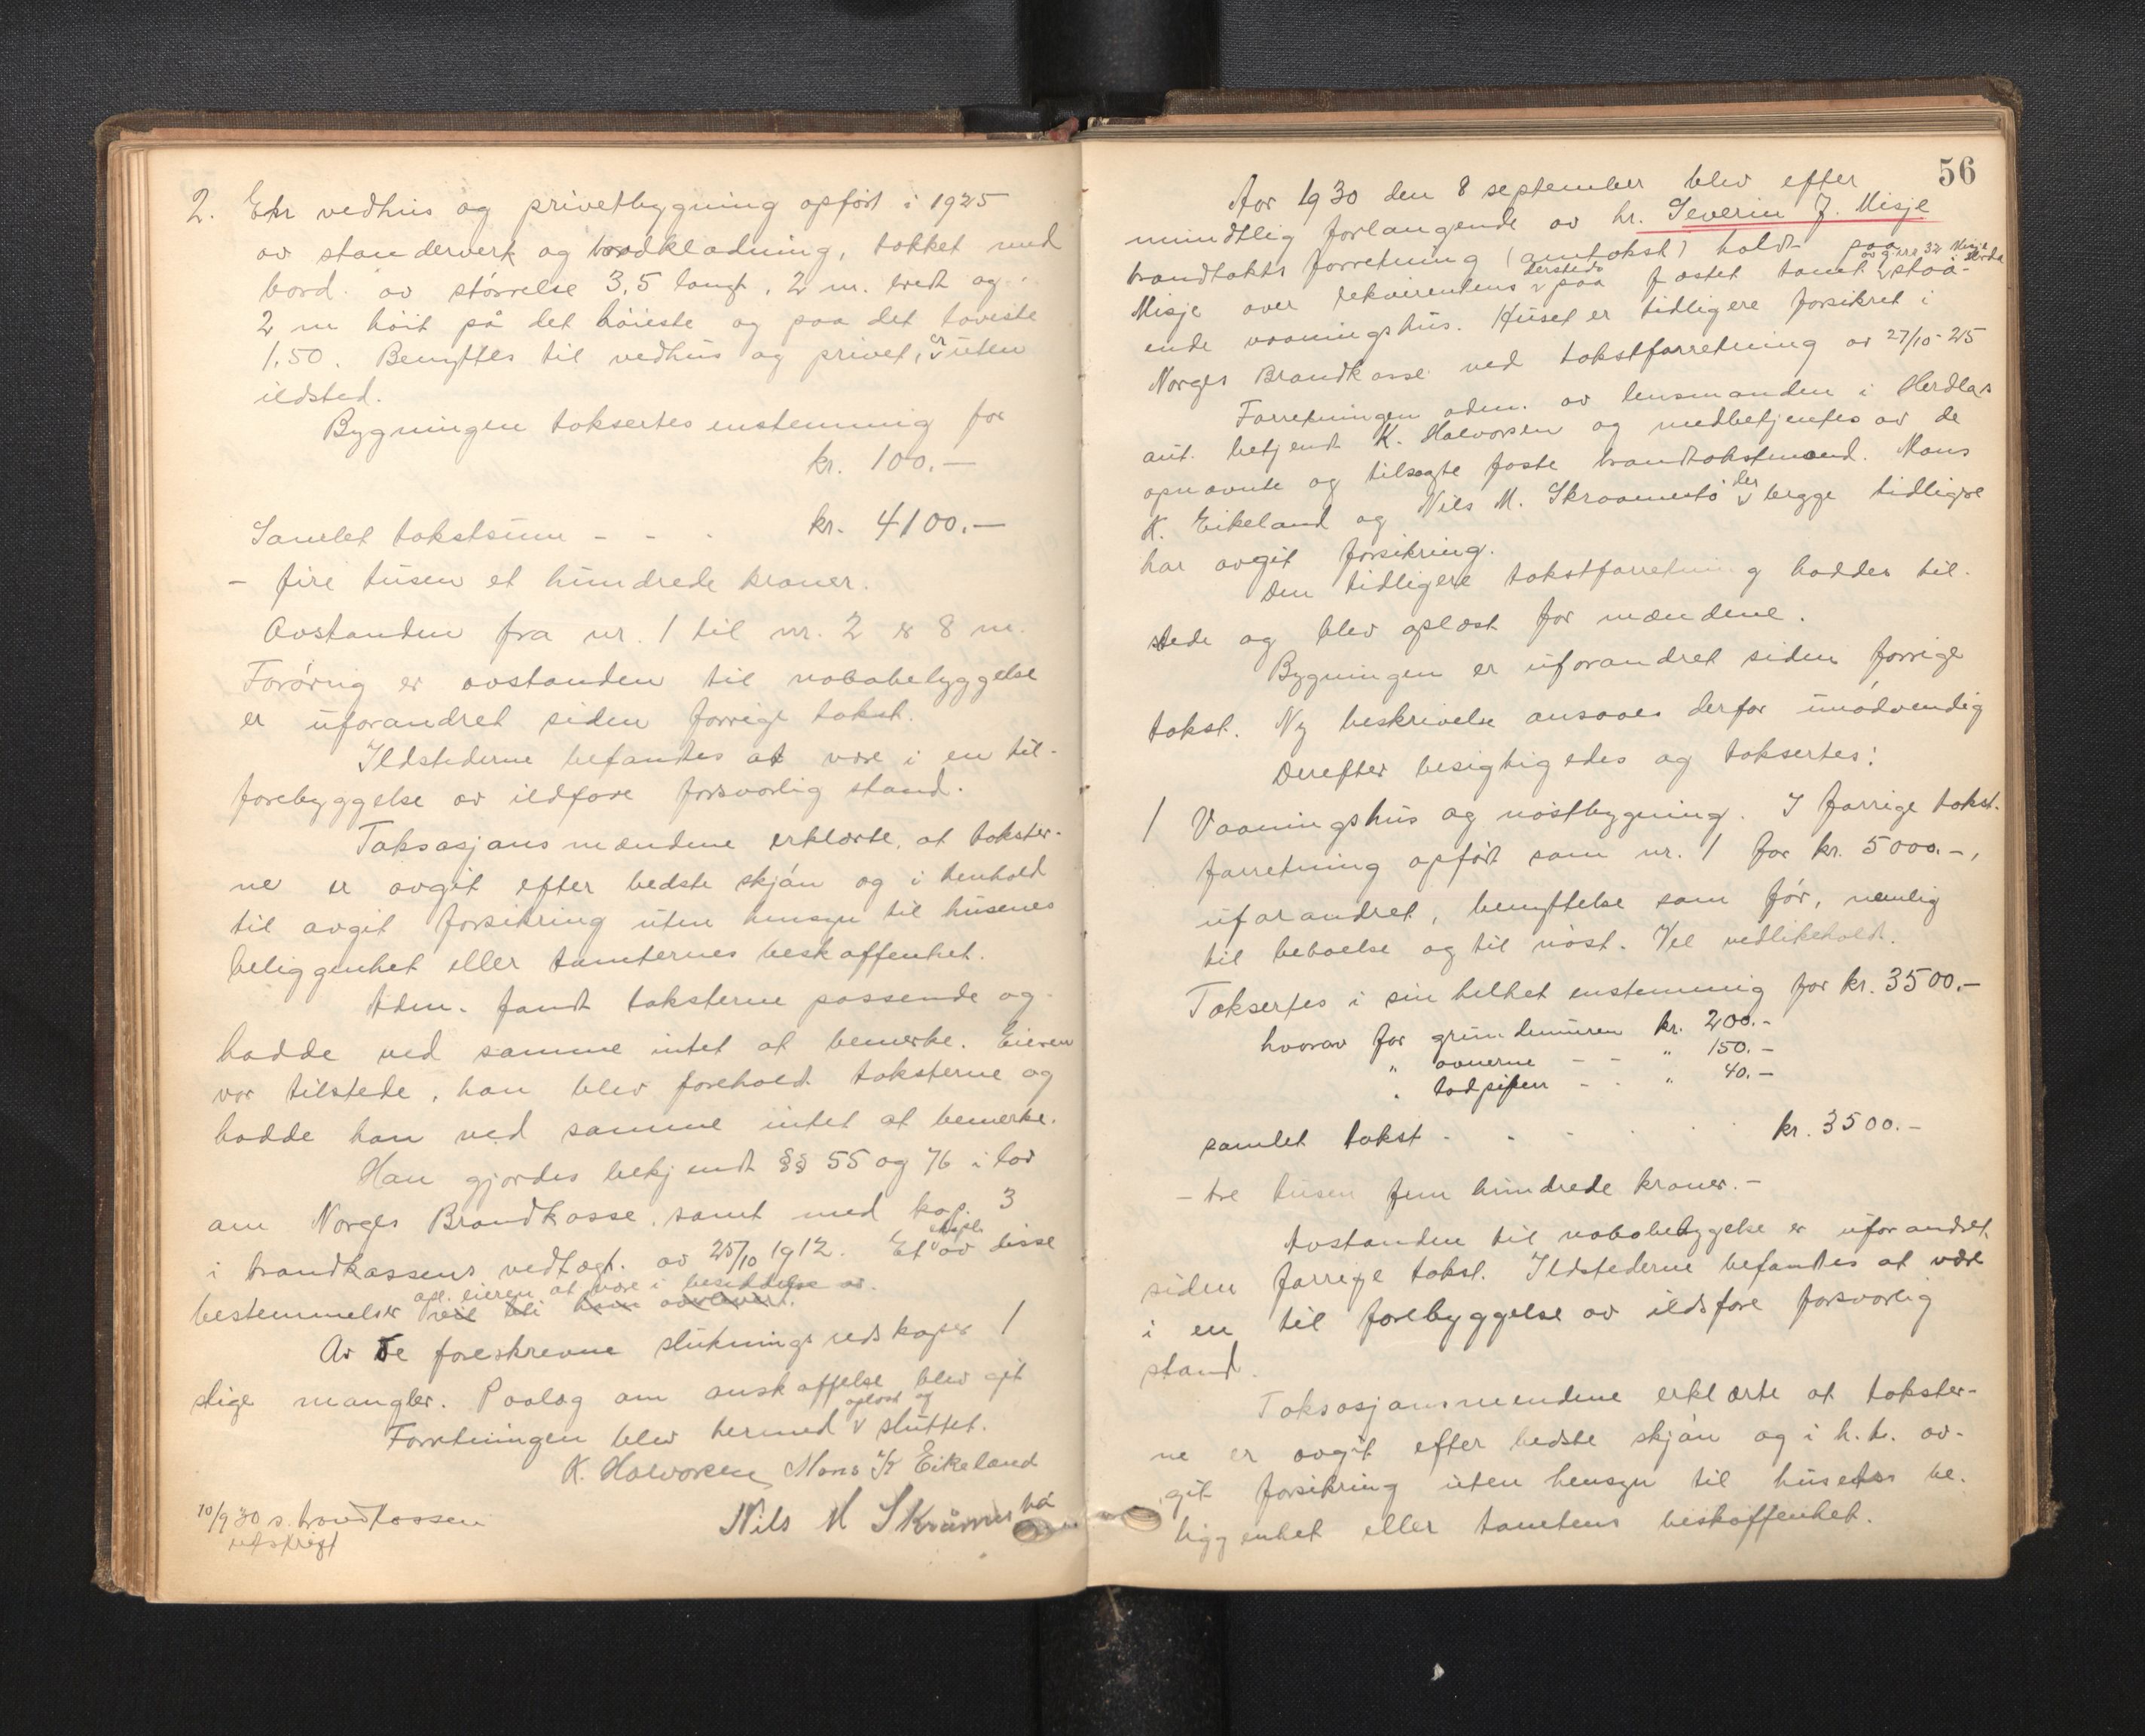 2. Ekr vedhus og privetbygning opført i 1925
av standerverk og bordklædning, tækket med
bord av størrelse 3,5 langt, 2 m. bredt og
2 m høit på det høieste og paa det laveste
1,50. Benyttes til vedhus og privet, er uten
ildsted.
Bygningen taksertes enstemmig for
kr. 100.-
Samlet takstsum - - - kr. 4100.-
- fire tusen et hundrede kroner.
Avstanden fra nr. 1 til nr. 2 er 8 m.
Forøvrig er avstanden til nabobebyggelse
er uforandret siden forrige takst.
Ildstederne befandtes at være i en til-
forebyggelse av ildfare forsvarlig stand.
Taksasjonsmændene erklærte, at takster-
ne er avgit efter bedste skjøn og i henhold
til avgit forsikring uten hensyn til husenes
beliggenhet eller tomternes beskaffenhet.
Adm. fandt taksterne passende og
hadde ved samme intet at bemerke. Eieren
var tilstede, han blev foreholdt taksterne og
hadde han ved samme intet at bemerke.
Han gjordes bekjendt §§ 55 og 76 i lov
om Norges Brandkasse, samt med kap. 3
i brandkassens vedtægt. av 25/10 1912. Et expl. av disse
bestemmelser opl. eieren at være i besiddelse av.
Av de foreskrevne slukningsredskaper 1
stige mangler. Paalæg om anskaffelse blev git
Forretningen blev hermed oplæst og sluttet.
K. Halvorsen Mons K Eikeland
Nils M Skråmestø
10/9 30 s. brandkassen
utskrift
56
Aar 1930 den 8 september blev efter
mundtlig forlangende av hr. Severin J. Misje
brandtakts forretning (omtakst) holdt paa
Misje over rekvirentens dersteds paa fæstet tomt av g. nr. 32 Misje Herdla staa-
ende vaaningshus. Huset er tidligere forsikret i
Norges Brandkasse ved takstforretning av 27/10-25
Forretningen adm. av lensmanden i Herdlas
aut. betjent K. Halvorsen og medbetjentes av de
opnævnte og tilsagte faste brandtakstmænd. Mons
K. Eikeland og Nils M. Skraamestø der begge tidligere
har avgit forsikring.
Den tidligere takstforretning haddes til-
stede og blev oplæst for mændene.
Bygningen er uforandret siden forrige
takst. Ny beskrivelse ansaaes derfor unødvendig
Derefter besigtigedes og taksertes:
1 Vaaningshus og nøstbygning. I forrige takst-
forretning opført som nr. 1 for kr. 5000.-,
uforandret, benyttelse som før, nemlig
til beboelse og til nøst. Vel vedlikeholdt.
Taksertes i sin helhet enstemmig for kr. 3500.-
hvorav for grundmuren kr. 200.-
" ovnerne - - " 150.-
" takpipen - - " 40.-
samlet takst - - - - - kr. 3500.-
- tre tusen fem hundrede kroner.-
Avstanden til nabobebyggelse er uforandret
siden forrige takst. Ildstederne befandtes at være
i en til forebyggelse av ildsfare forsvarlig
stand.
Taksasjonsmendene erklærte at takster-
ne er avgit efter bedste skjøn og i h. t. av-
git forsikring uten hensyn til husets be-
liggenhet eller tomtens beskaffenhet.